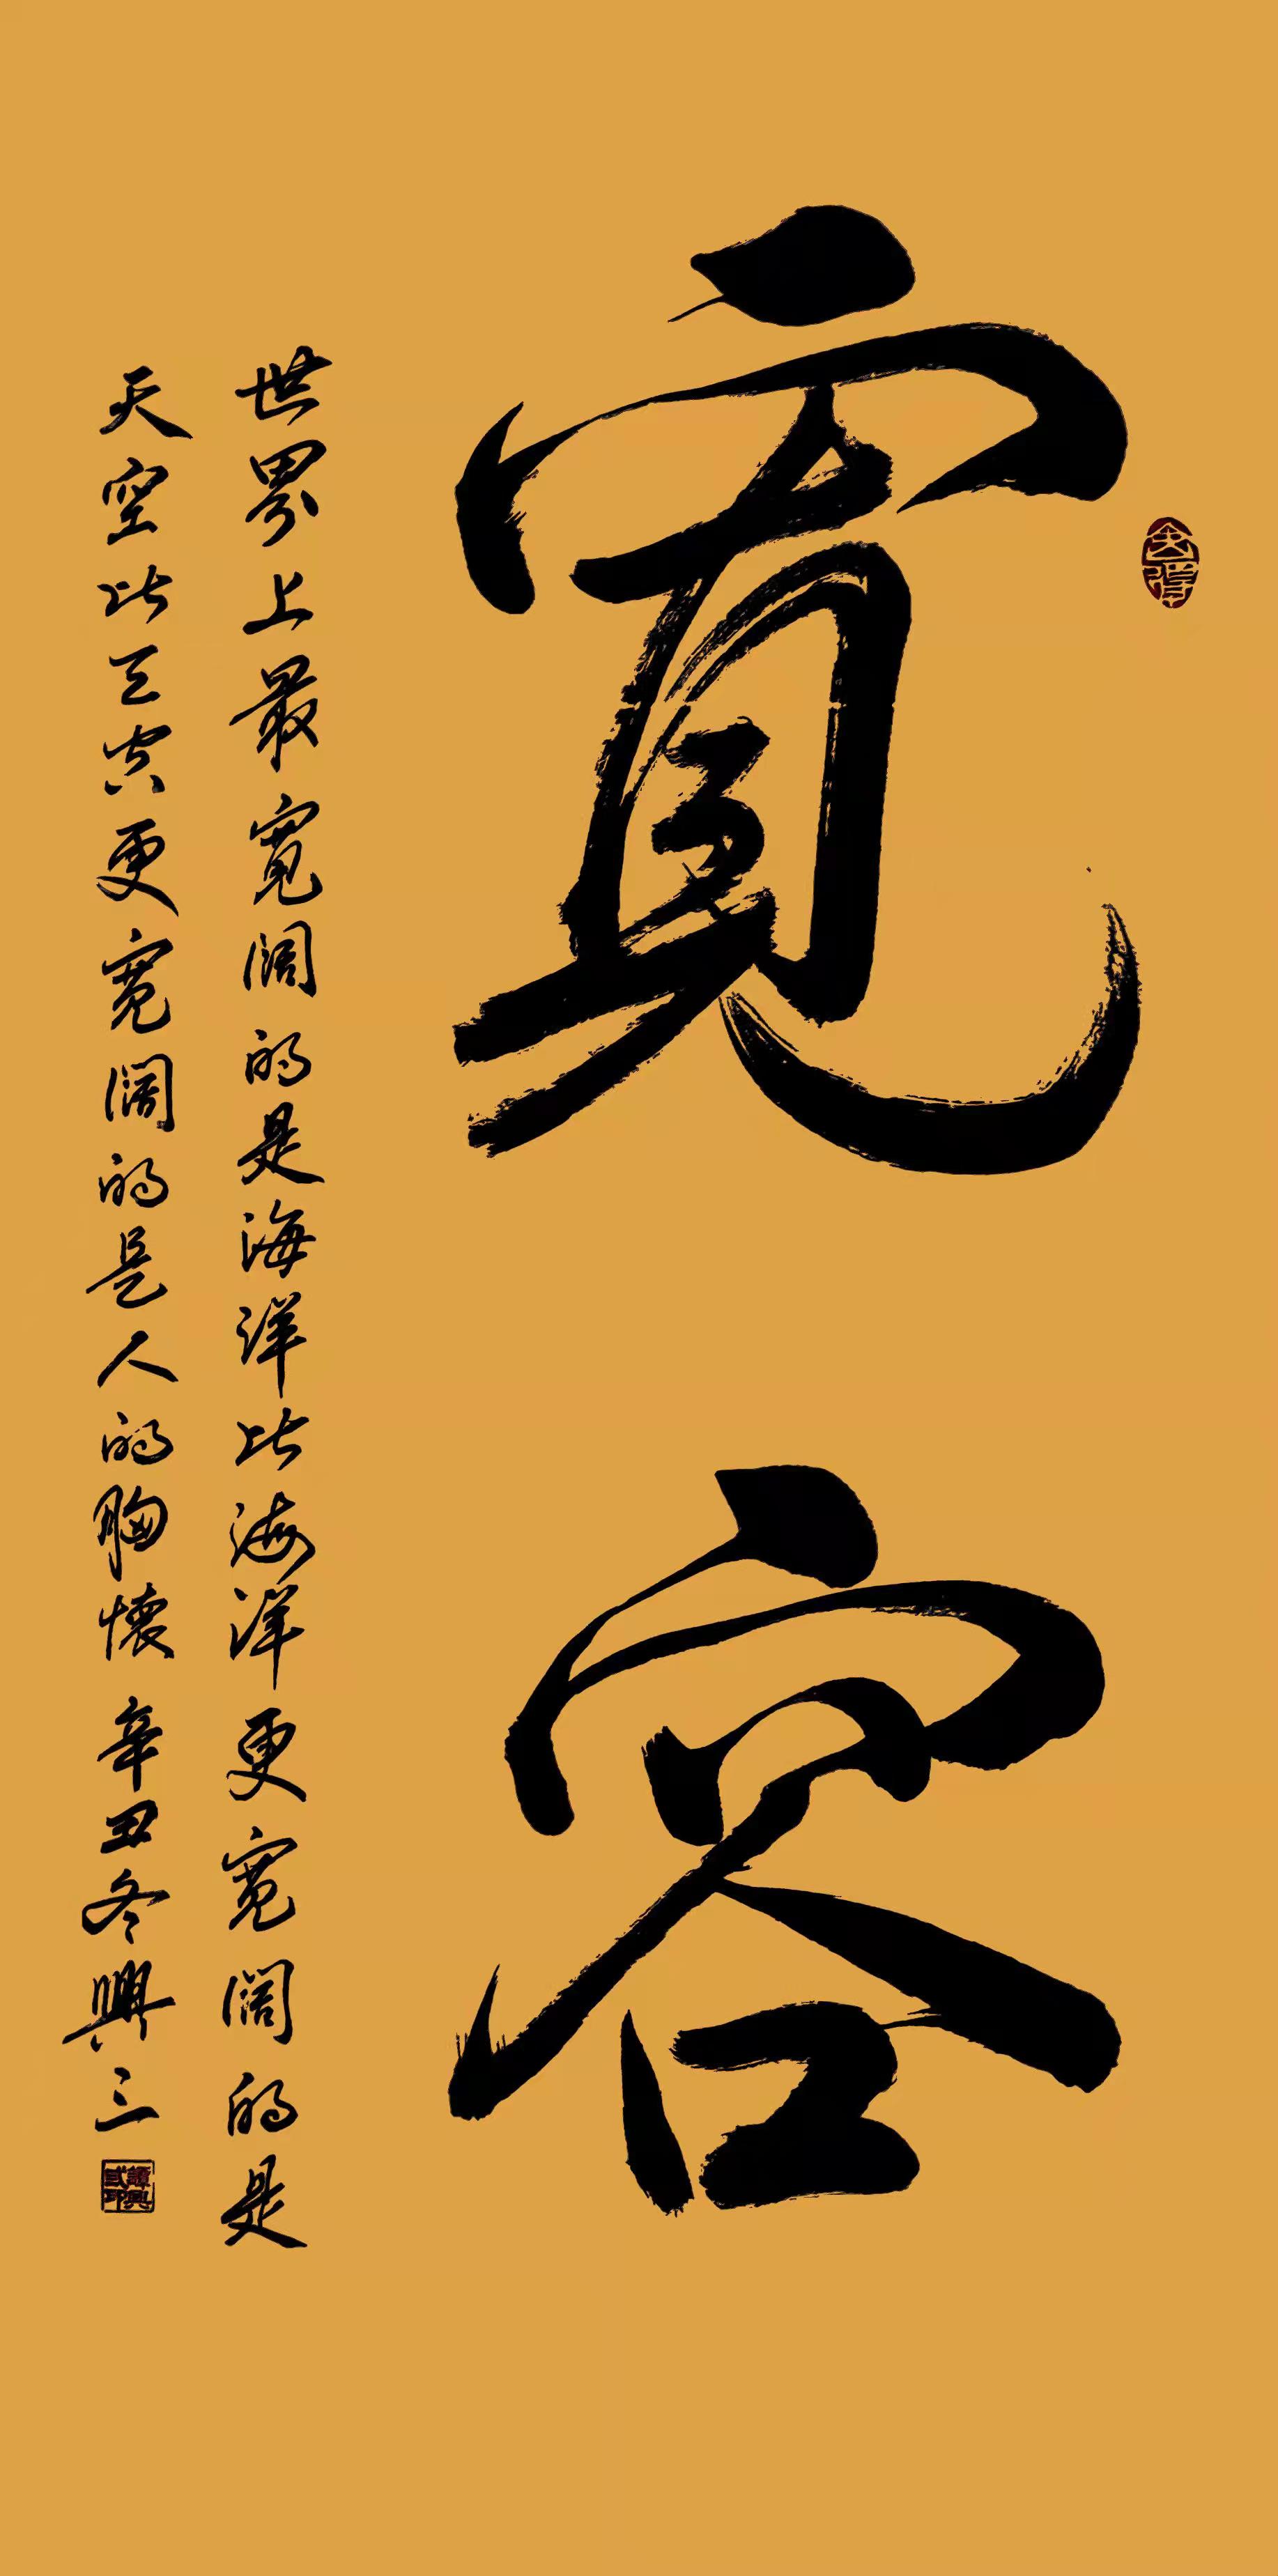 寬容
世界上最寬闊的是海洋比海洋更寬闊的是
天空比天空更寬闊的是人的胸懷 辛丑冬興三